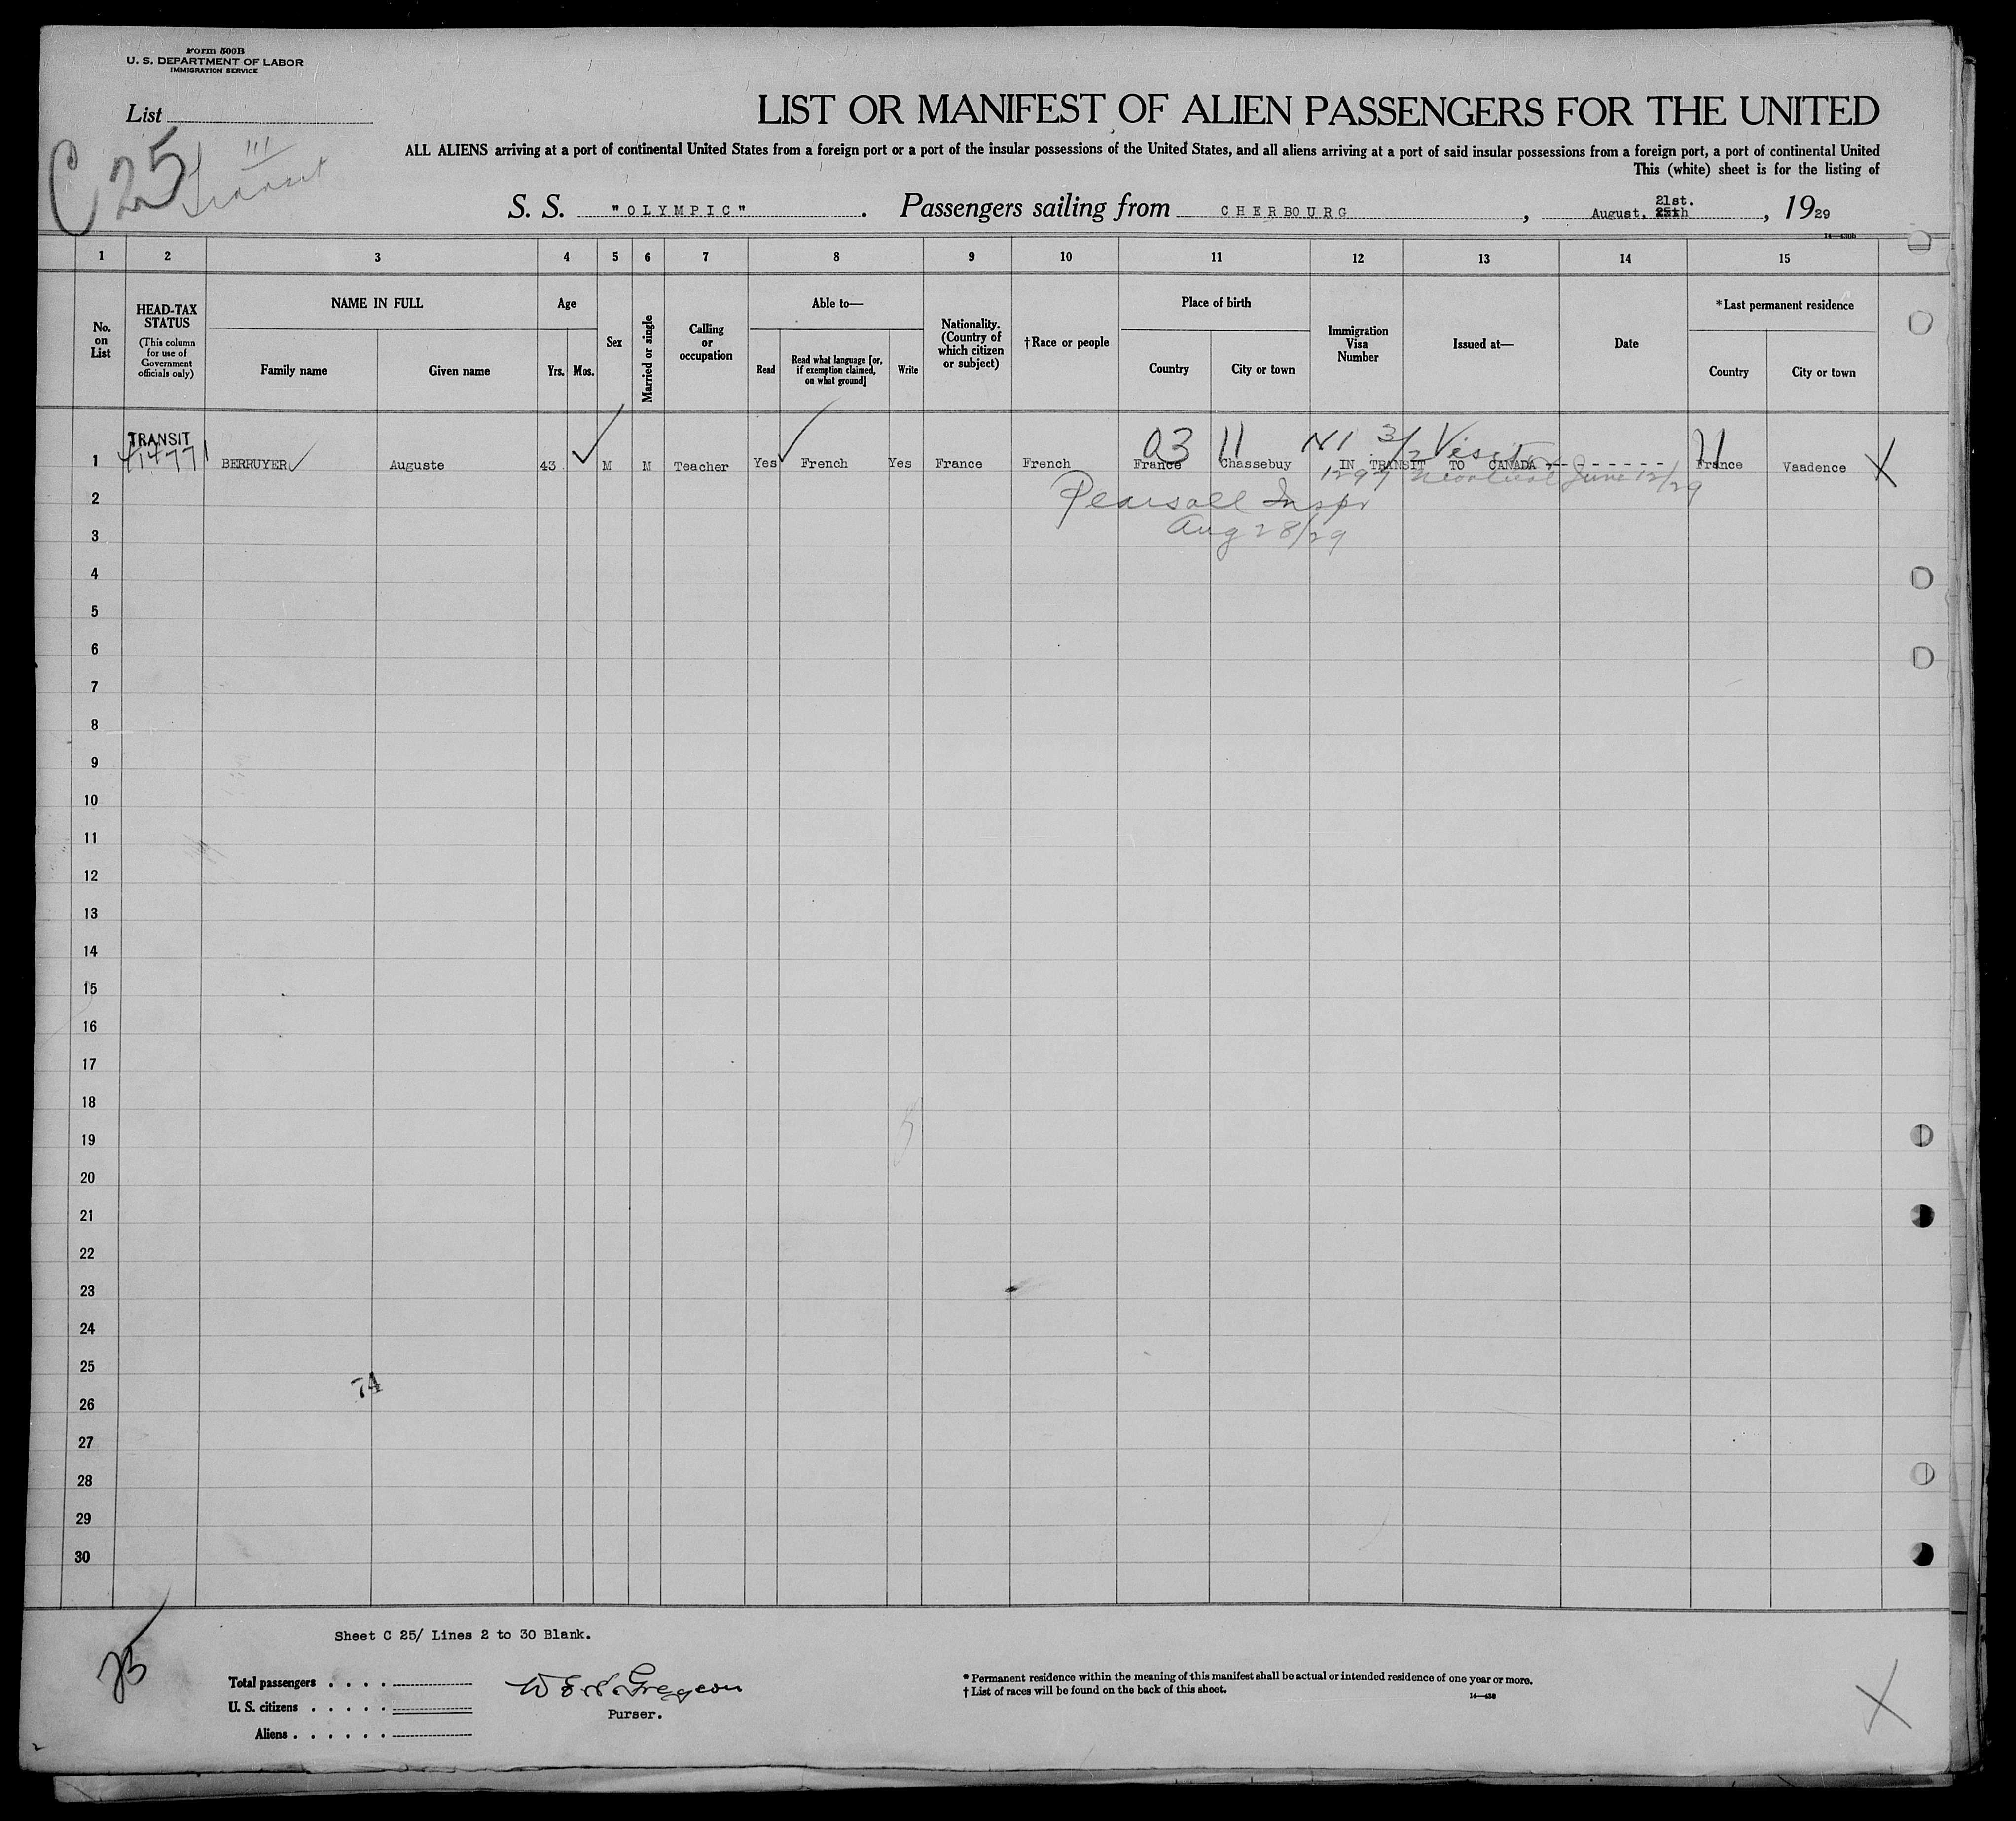 Form 500B
U. S. DEPARTMENT OF LABOR
IMMIGRATION SERVICE
List
C 25
III
Transit
LIST OR MANIFEST OF ALIEN PASSENGERS FOR THE UNITED
ALL ALIENS arriving at a port of continental United States from a foreign port or a port of the insular possessions of the United States, and all aliens arriving at a port of said insular possessions from a foreign port, a port of continental United
This (white) sheet is for the listing of
S. S. "OLYMPIC". Passengers sailing from CHERBOURG, August, 21st., 1929
1 2 3 4 5 6 7 8 9 10 11 12 13 14 15
No. on List
HEAD-TAX STATUS
(This column for use of Government officials only)
NAME IN FULL
Family name
Given name
Age
Yrs. Mos.
Sex
Married or single
Calling or occupation
Able to—
Read
Read what language [or, if exemption claimed, on what ground]
Write
Nationality. (Country of which citizen or subject)
†Race or people
Place of birth
Country
City or town
Immigration Visa Number
Issued at—
Date
*Last permanent residence
Country
City or town
TRANSIT
03 11 3/2 Visitor
1 BERRUYER Auguste 43 M M Teacher Yes French Yes France French France Chassebuy IN TRANSIT TO CANADA - - - - - - - - France Vaadence X
1297 Montreal June 12/29
2
Pearsall Inspr
3
Aug 28/29
4
5
6
7
8
9
10
11
12
13
14
15
16
17
18
19
20
21
22
23
24
25
74
26
27
28
29
30
Sheet C 25/ Lines 2 to 30 Blank.
Total passengers . . . .
U. S. citizens . . . . .
Aliens . . . . . .
Purser.
* Permanent residence within the meaning of this manifest shall be actual or intended residence of one year or more.
† List of races will be found on the back of this sheet.
X